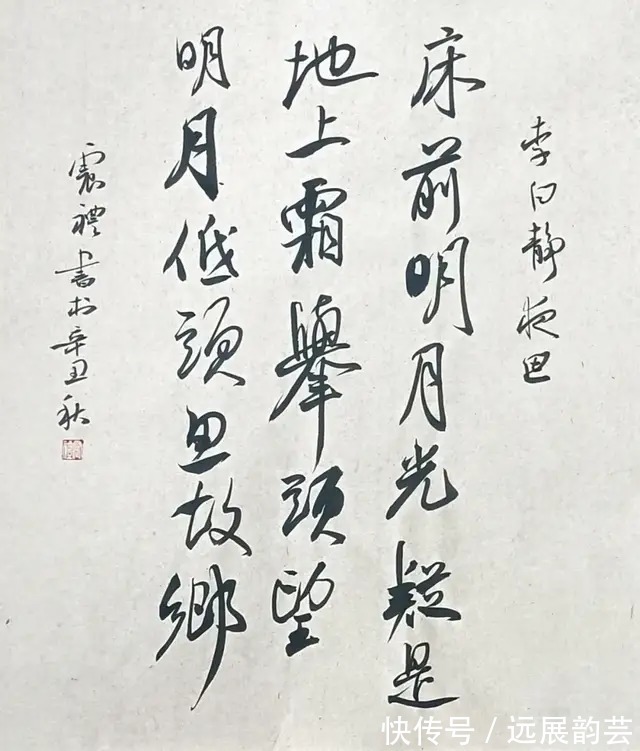 李白静夜思
床前明月光疑是
地上霜舉頭望
明月低頭思故鄉
震禮書於辛丑秋
快传号/远展韵芸